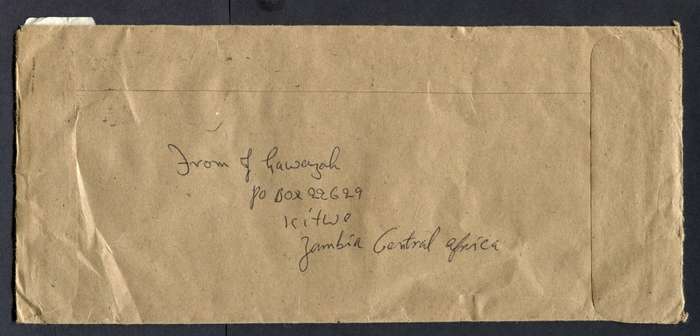 From J Gawazah
PO BOX 22629
Kitwe
Zambia Central africa